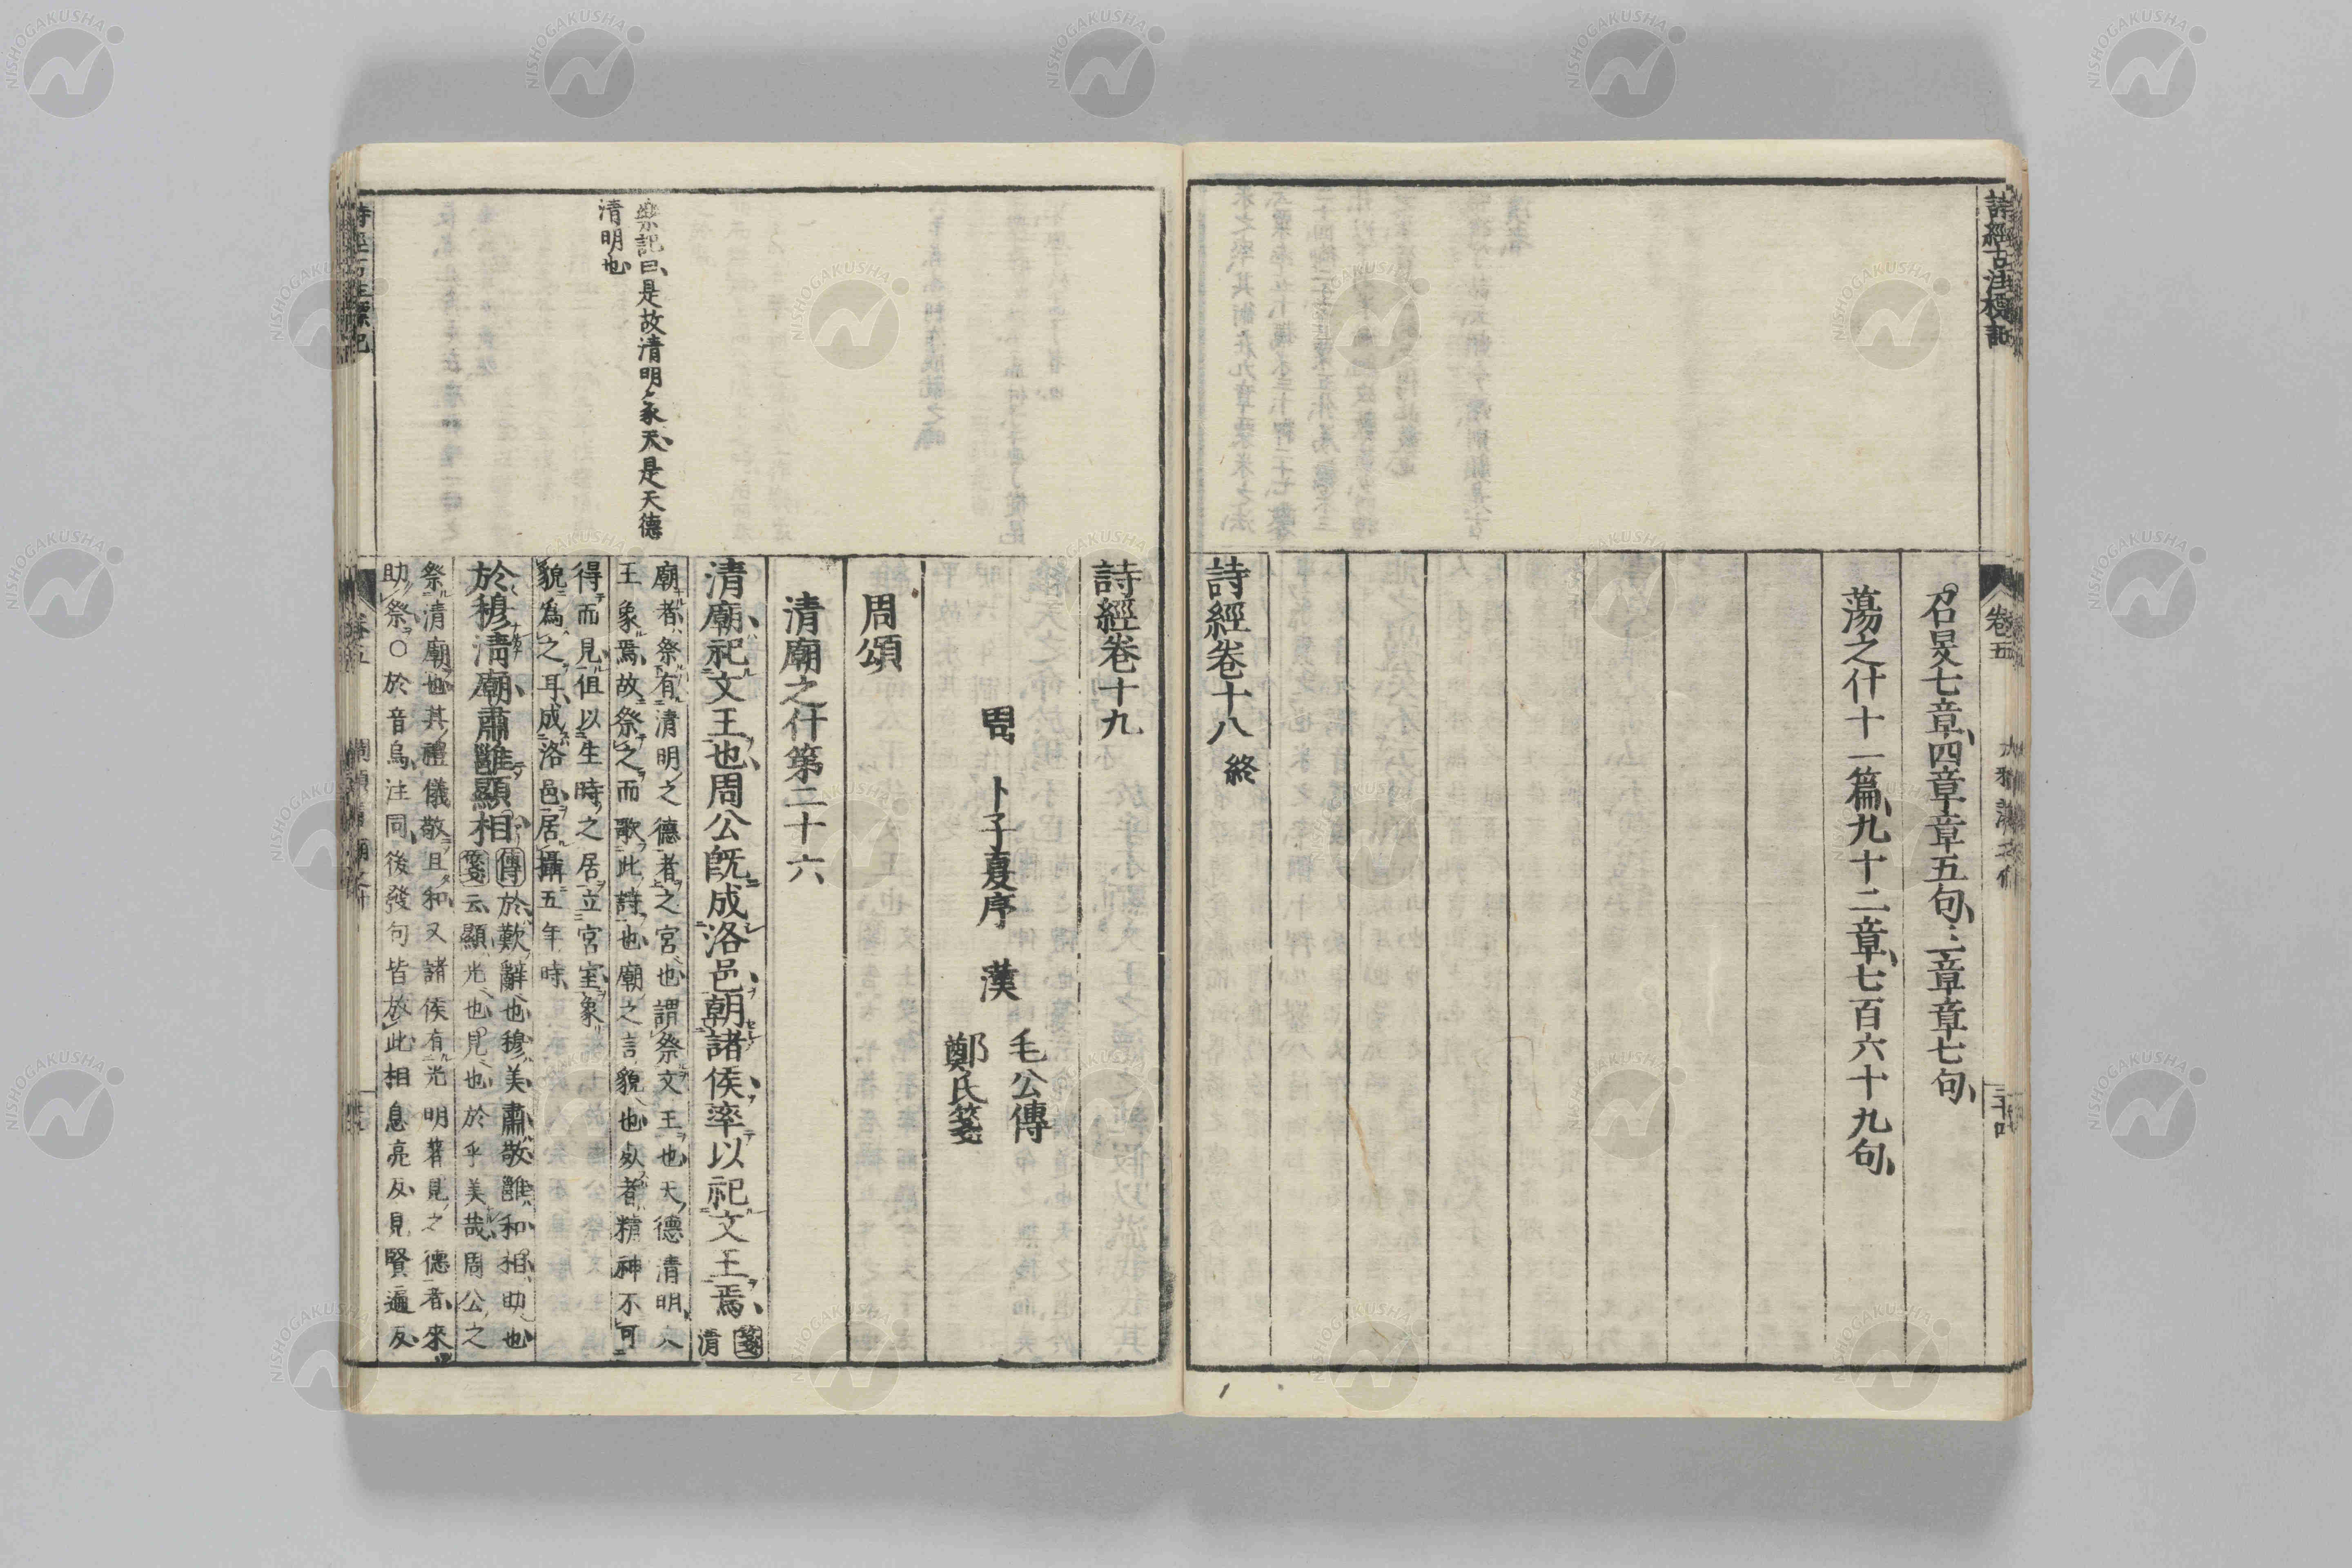 詩經古注標記
卷五
三十四
召旻七章四章章五句三章章七句
蕩之什十一篇九十二章七百六十九句
詩經卷十八 終
詩經卷十九
周 卜子夏序 漢 毛公傳
鄭氏箋
周頌
清廟之什第二十六
樂記曰是故清明象天是天德
清明也
清廟祀文王也周公既成洛邑朝諸侯率以祀文王焉 箋 清
廟者祭有清明之德者之宮也謂祭文王也天德清明文
王象焉故祭之而歌此詩也廟之言貌也死者精神不可
得而見但以生時之居立宮室象
貌為之耳成洛邑居攝五年時
於穆清廟肅雝顯相 傳 於歎辭也穆美肅敬雝和相助也
箋云顯光也見也於乎美哉周公之
祭清廟也其禮儀敬且和又諸侯有光明著見之德者來
助祭○於音烏注同後發句皆放此相息亮反見賢遍反
詩經古注標記
卷五
NISHOGAKUSHA